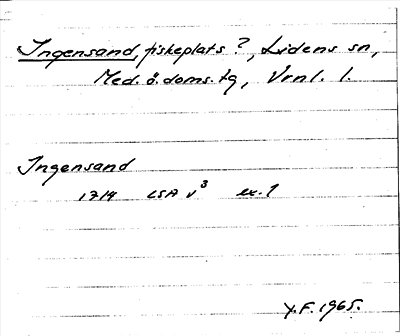 Ingensand, fiskeplats?, Lidens sn,
Med. ö. doms. tg, Vrnl. l.
Ingensand
1714 LSA V³ ex. 1
Y.F. 1965.